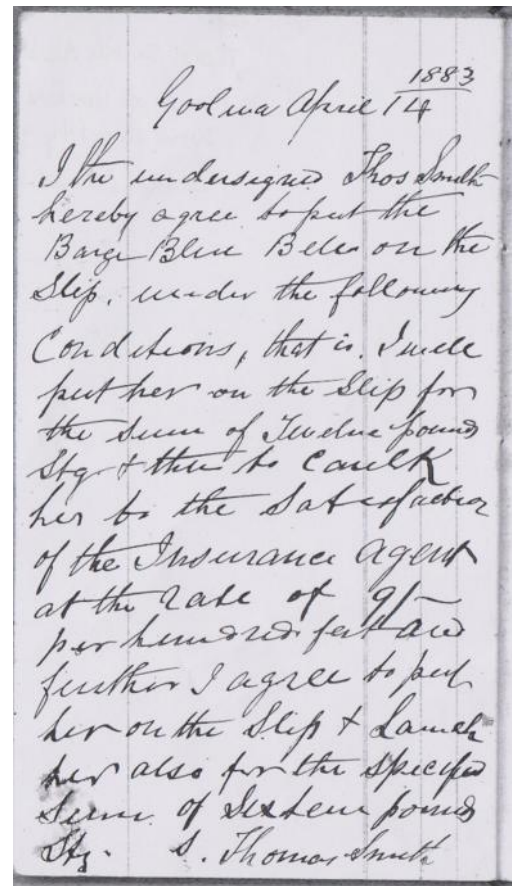 1883
Goolwa April 14
I the undersigned Thos Smith
hereby agree to put the
Barge Blue Bell on the
Slip, under the following
Conditions, that is. I will
put her on the Slip for
the sum of Twelve pound
Stg & then to Caulk
her to the Satisfaction
of the Insurance Agent
at the rate of 9/-
per hundred feet and
further I agree to put
her on the Slip & Launch
her also for the specified
Sum of Sixteen pound
Stg. S. Thomas Smith